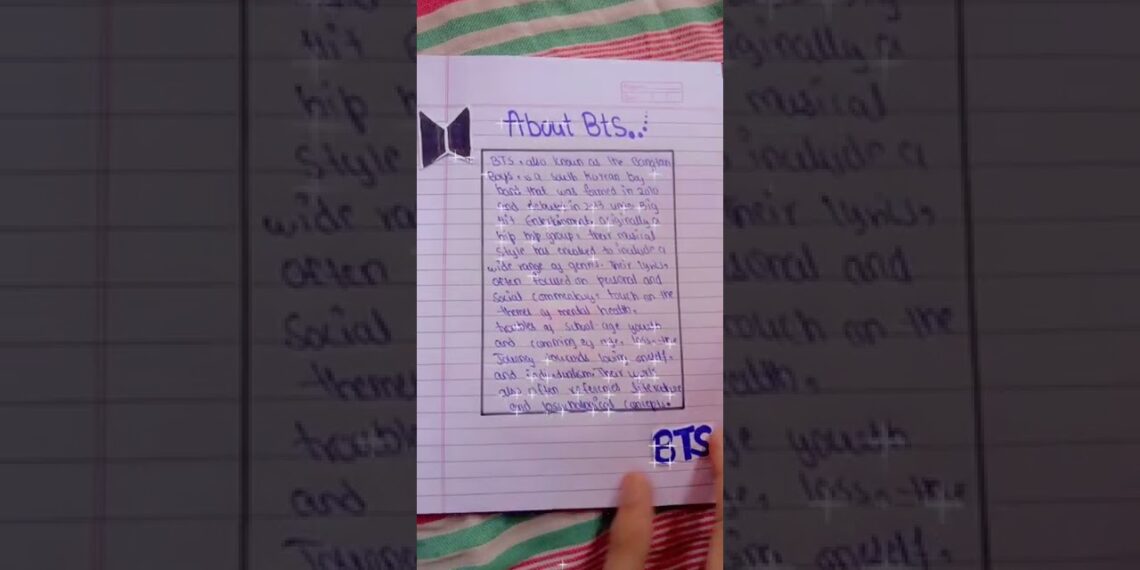 About Bts..
BTS, also known as the Bangtan
Boys, is a south Korean boy
band that was formed in 2010
and debuted in 2013 under Big
Hit Entertainment. Originally a
hip hop group, their musical
style has evolved to include a
wide range of genres. Their lyrics,
often focused on personal and
social commentary, touch on the
themes of mental health,
troubles of school-age youth
and comming of age, loss, the
Journey towards loving oneself,
and individualism. Their work
also often referenced literature
and psychological concepts.
BTS